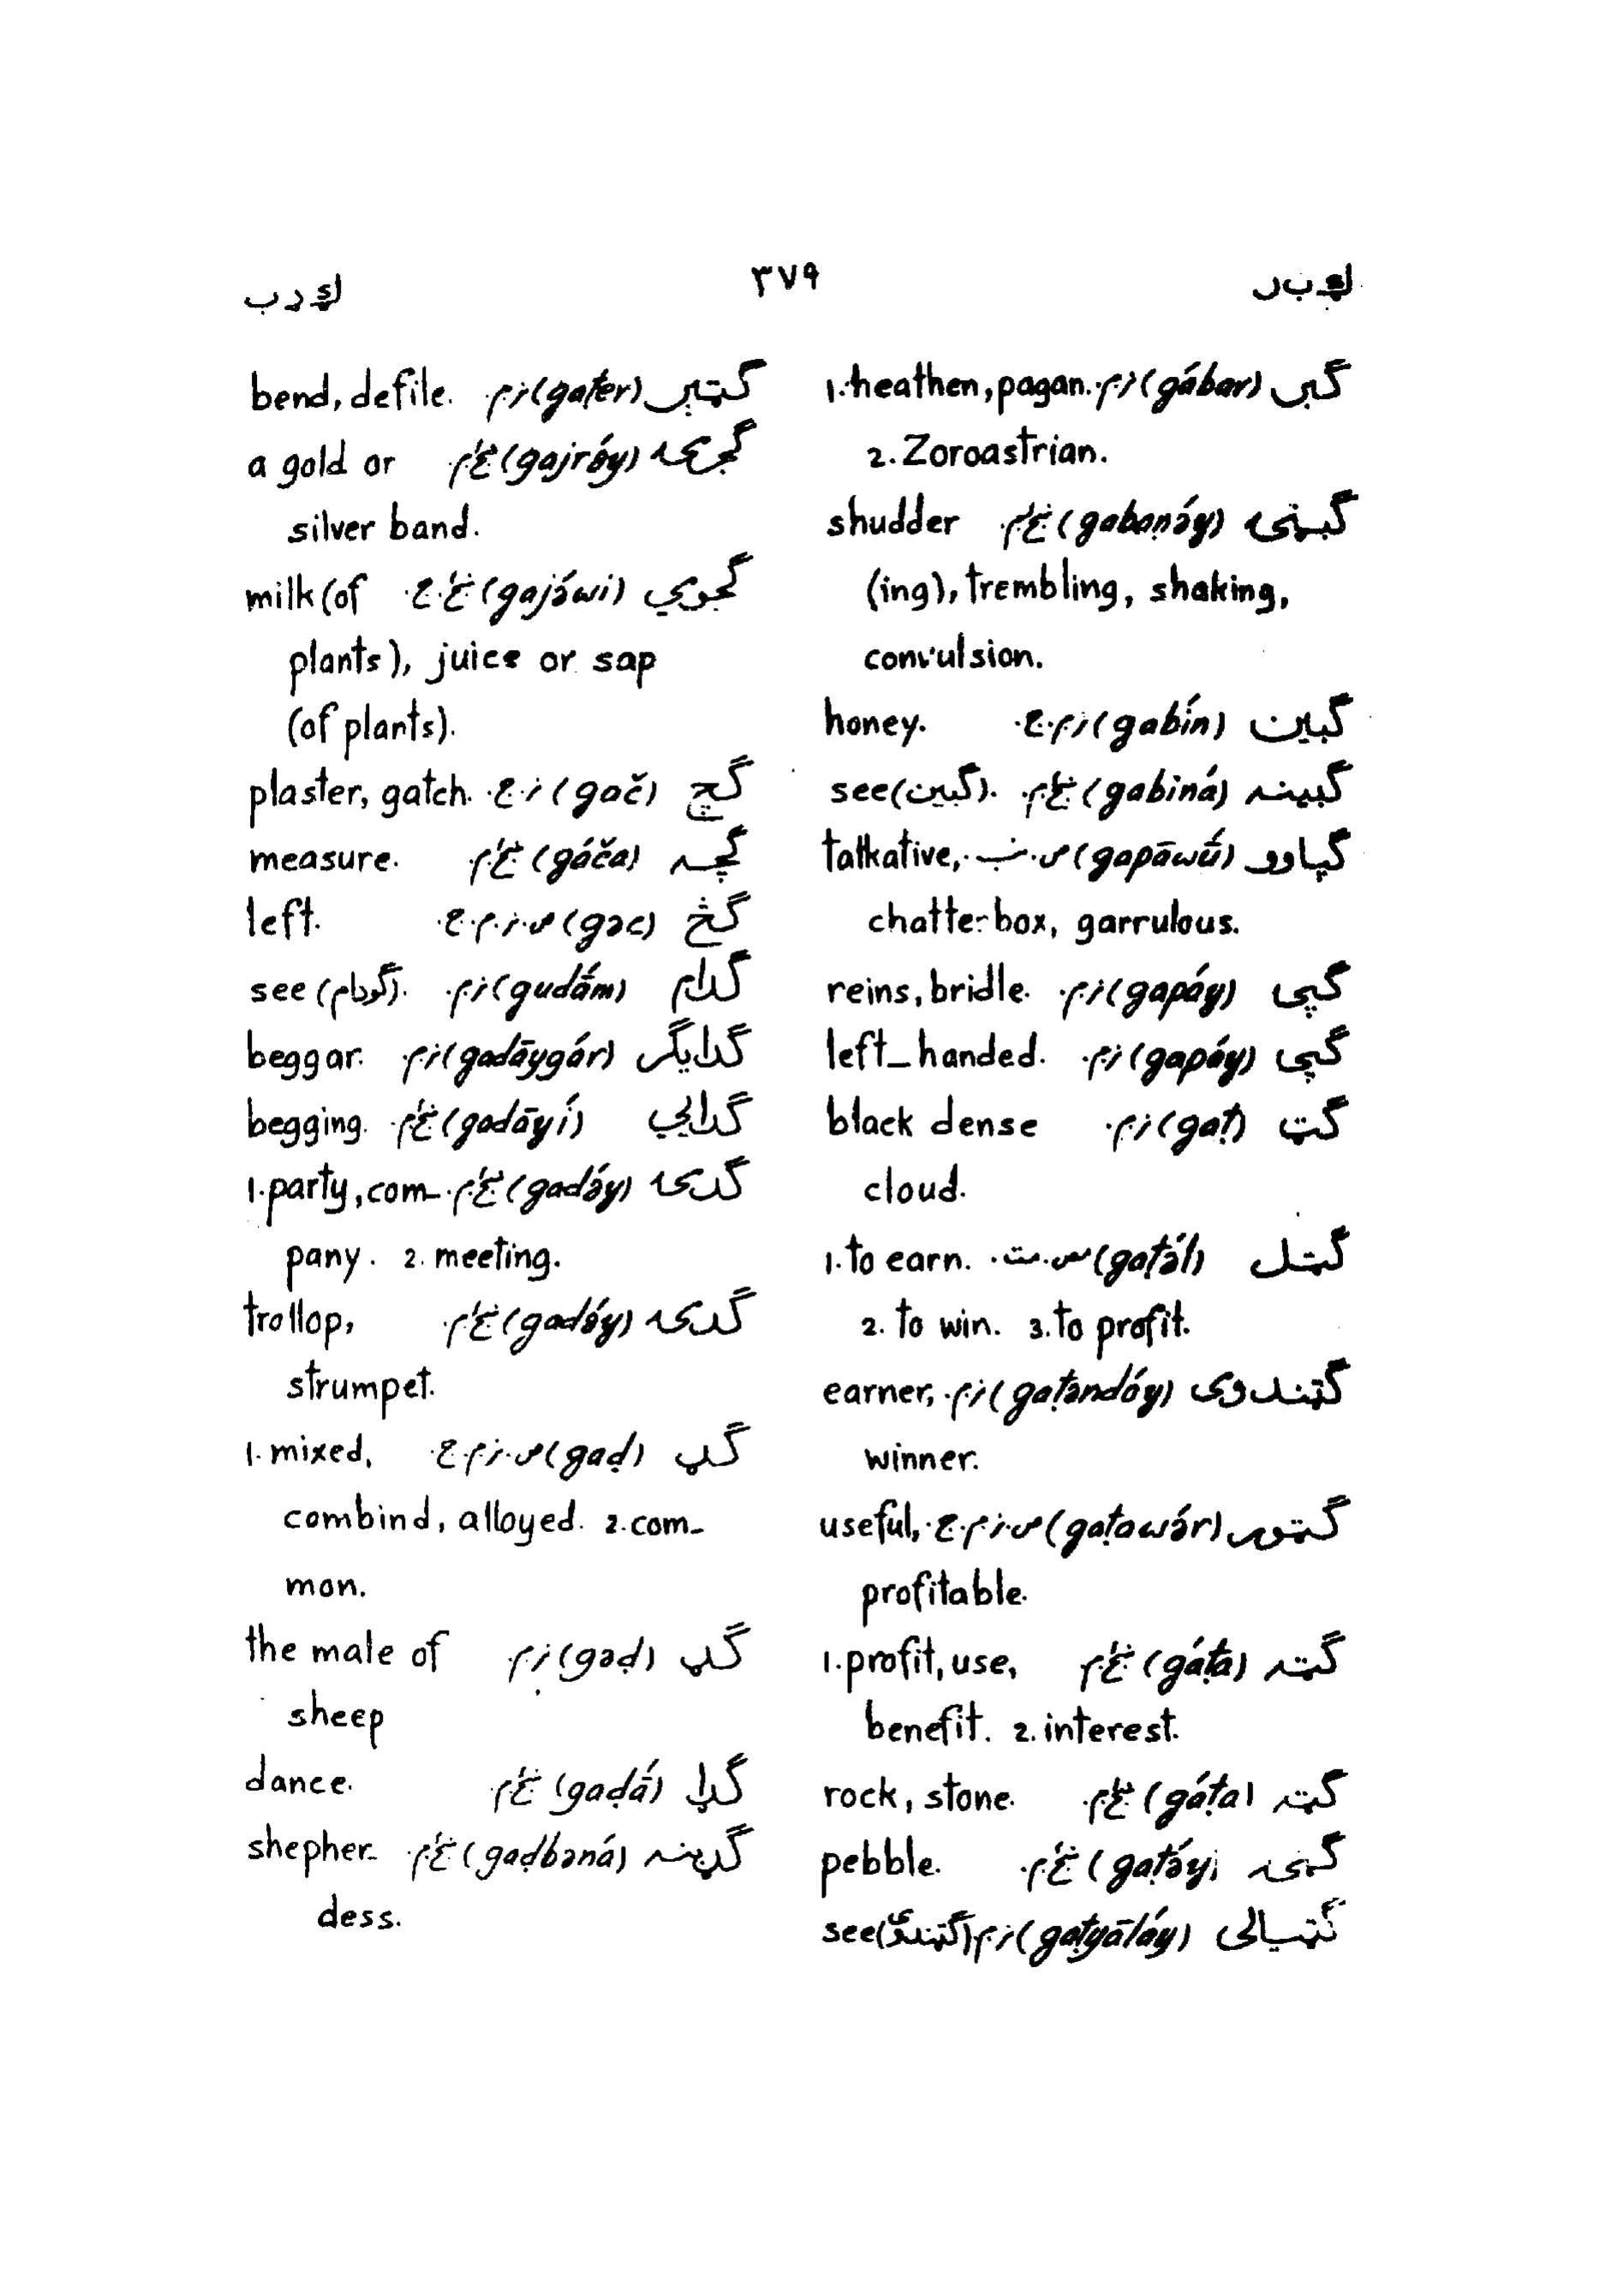 ګ ب ر
٣٧٩
ګ د ب
ګبر (gábar) نر.م. 1. heathen, pagan.
2. Zoroastrian.
ګبڼۍ (gabaṇə́y) ښځ.م. shudder
(ing), trembling, shaking,
convulsion.
ګبين (gabín) نر.م.ج. honey.
ګبينه (gabiná) ښځ.م. see (ګبين).
ګپاوو (gapāwú) ص. talkative,
chatterbox, garrulous.
ګپی (gapáy) نر.م. reins, bridle.
ګپی (gapáy) نر.م. left_handed.
ګټ (gaṭ) نر.م. black dense
cloud.
ګټل (gaṭə́l) مص.مت. 1. to earn.
2. to win. 3. to profit.
ګټندوی (gaṭəndóy) نر.م. earner,
winner.
ګټور (gaṭawár) ص.نر.م.ج. useful,
profitable.
ګټه (gáṭa) ښځ.م. 1. profit, use,
benefit. 2. interest.
ګټه (gáṭa) ښځ.م. rock, stone.
ګټۍ (gaṭə́y) ښځ.م. pebble.
ګټيالی (gaṭyāláy) نر.م. see (ګټندوی)
ګټير (gaṭer) نر.م. bend, defile.
ګجرۍ (gajrə́y) ښځ.م. a gold or
silver band.
ګجوي (gajə́wi) ښځ.ج. milk (of
plants), juice or sap
(of plants).
ګچ (gač) نر.ج. plaster, gatch.
ګچه (gáča) ښځ.م. measure.
ګڅ (gəc) ص.نر.م.ج. left.
ګدام (gudā́m) نر.م. see (ګودام).
ګدايګر (gadāygár) نر.م. beggar.
ګدايي (gadāyí) ښځ.م. begging.
ګدۍ (gadə́y) ښځ.م. 1. party, com-
pany. 2. meeting.
ګدۍ (gadə́y) ښځ.م. trollop,
strumpet.
ګډ (gaḍ) ص.نر.م.ج. 1. mixed,
combind, alloyed. 2. com-
mon.
ګډ (gəḍ) نر.م. the male of
sheep
ګډا (gaḍā́) ښځ.م. dance.
ګډبنه (gaḍbəná) ښځ.م. shepher-
dess.